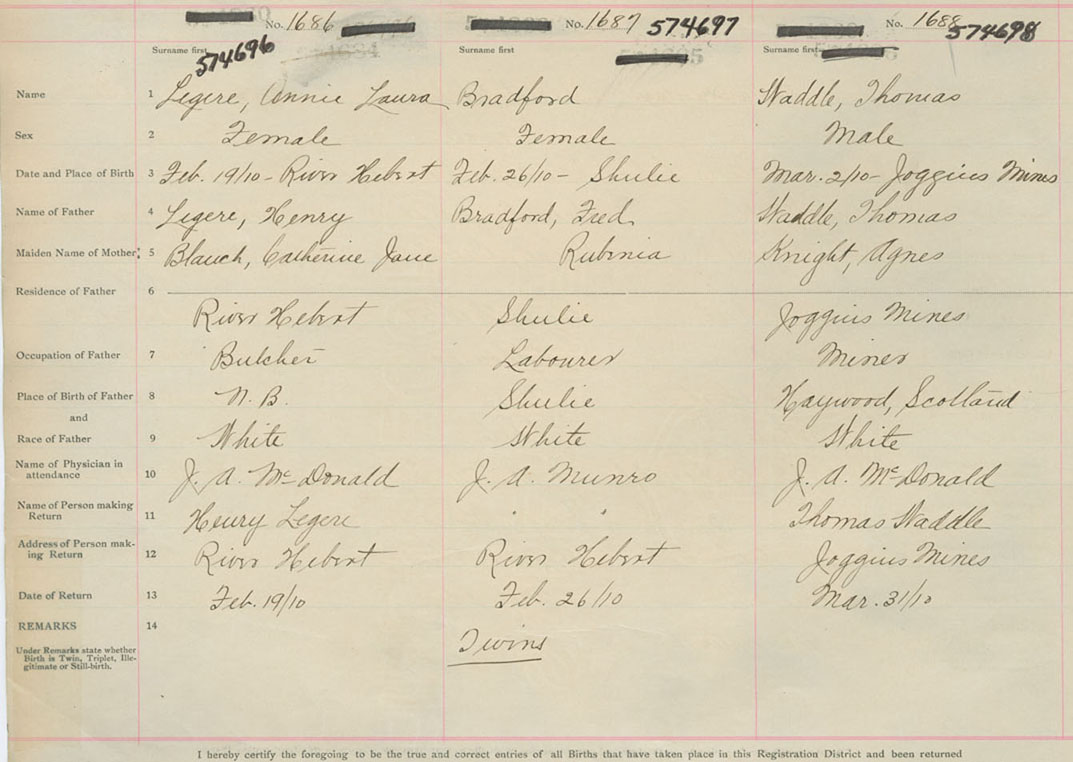 No. 1686 No. 1687 574697 No. 1688 574698
Surname first 574696 Surname first Surname first
Name 1 Legere, Annie Laura Bradford Waddle, Thomas
Sex 2 Female Female Male
Date and Place of Birth 3 Feb. 19/10 - River Hebert Feb. 26/10 - Shulie Mar. 2/10 - Joggins Mines
Name of Father 4 Legere, Henry Bradford, Fred Waddle, Thomas
Maiden Name of Mother 5 Blanch, Catherine Jane Rubinia Knight, Agnes
Residence of Father 6
River Hebert Shulie Joggins Mines
Occupation of Father 7 Butcher Labourer Miner
Place of Birth of Father 8 N. B. Shulie Haywood, Scotland
and
Race of Father 9 White White White
Name of Physician in
attendance 10 J. A. McDonald J. A. Munro J. A. McDonald
Name of Person making
Return 11 Henry Legere " " Thomas Waddle
Address of Person mak-
ing Return 12 River Hebert River Hebert Joggins Mines
Date of Return 13 Feb. 19/10 Feb. 26/10 Mar. 31/10
REMARKS 14
Twins
Under Remarks state whether
Birth is Twin, Triplet, Ille-
gitimate or Still-birth.
I hereby certify the foregoing to be the true and correct entries of all Births that have taken place in this Registration District and been returned